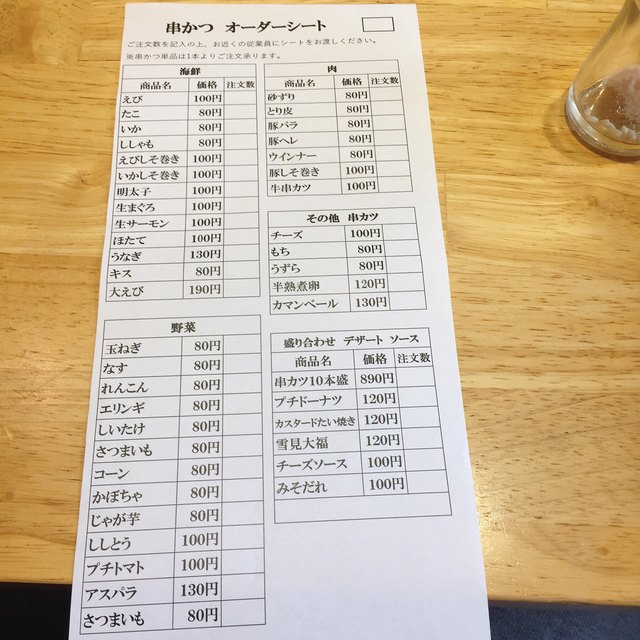 串かつ オーダーシート
ご注文数を記入の上、お近くの従業員にシートをお渡しください。
※串かつ単品は1本よりご注文承ります。
海鮮
商品名 価格 注文数
えび 100円
たこ 80円
いか 80円
ししゃも 80円
えびしそ巻き 100円
いかしそ巻き 100円
明太子 100円
生まぐろ 100円
生サーモン 100円
ほたて 100円
うなぎ 130円
キス 80円
大えび 190円
野菜
玉ねぎ 80円
なす 80円
れんこん 80円
エリンギ 80円
しいたけ 80円
さつまいも 80円
コーン 80円
かぼちゃ 80円
じゃが芋 80円
ししとう 100円
プチトマト 100円
アスパラ 130円
さつまいも 80円
肉
商品名 価格 注文数
砂ずり 80円
とり皮 80円
豚バラ 80円
豚ヘレ 80円
ウインナー 80円
豚しそ巻き 100円
牛串カツ 100円
その他 串カツ
チーズ 100円
もち 80円
うずら 80円
半熟煮卵 120円
カマンベール 130円
盛り合わせ デザート ソース
商品名 価格 注文数
串カツ10本盛 890円
プチドーナツ 120円
カスタードたい焼き 120円
雪見大福 120円
チーズソース 100円
みそだれ 100円